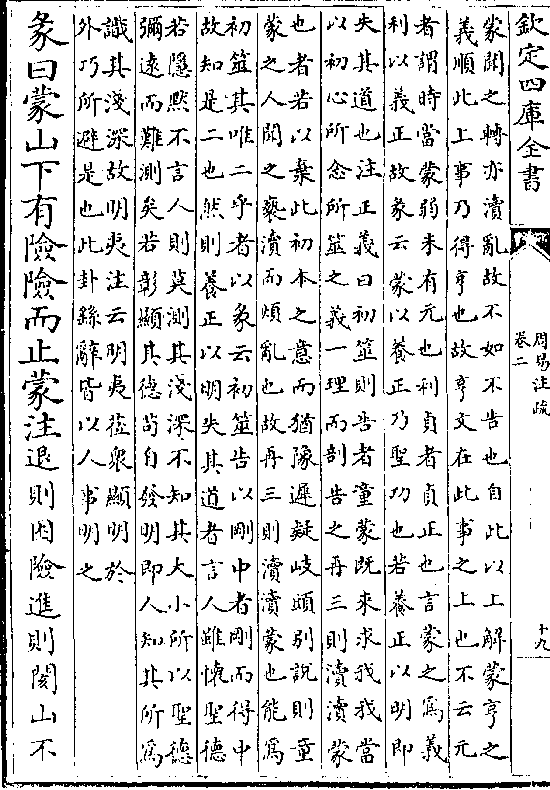 欽定四庫全書
周易注疏
卷二
十九
蒙聞之轉亦瀆亂故不如不告也自此以上解蒙亨之
義順此上事乃得亨也故亨文在此事之上也不云元
者謂時當蒙弱未有元也利貞者貞正也言蒙之為義
利以義正故彖云蒙以養正乃聖功也若養正以明即
失其道也注正義曰初筮則告者童蒙既來求我我當
以初心所念所筮之義一理而剖告之再三則瀆瀆蒙
也者若以棄此初本之意而猶豫遲疑岐頭別說則童
蒙之人聞之褻瀆而煩亂也故再三則瀆瀆蒙也能為
初筮其唯二乎者以彖云初筮告以剛中者剛而得中
故知是二也然則養正以明失其道者言人雖懷聖德
若隱默不言人則莫測其淺深不知其大小所以聖德
彌遠而難測矣若彰顯其德苟自發明即人知其所為
識其淺深故明夷注云明夷莅衆顯明於
外巧所避是也此卦繇辭皆以人事明之
彖曰蒙山下有險險而止蒙注退則困險進則閡山不